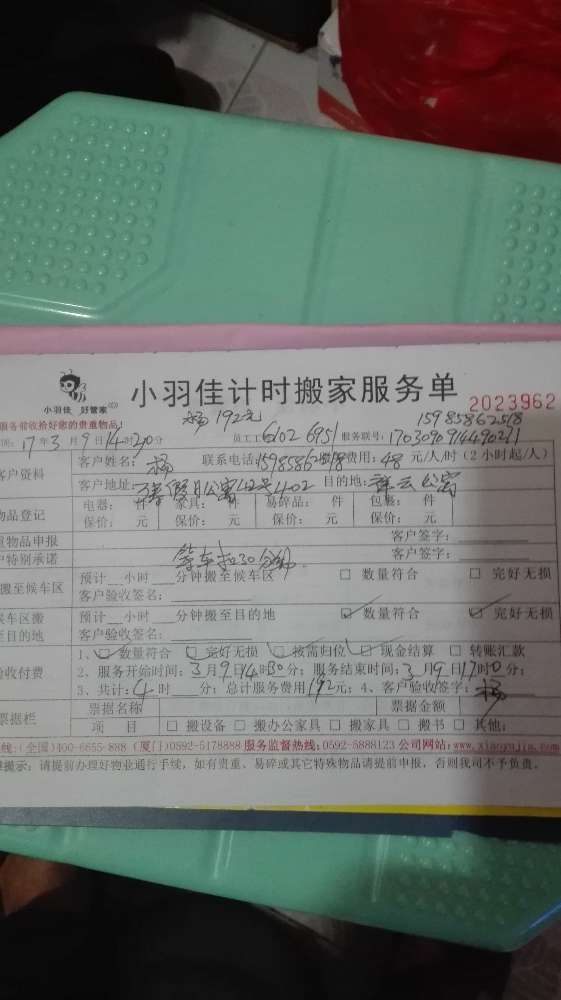 小羽佳 好管家
小羽佳计时搬家服务单
2023962
服务前收拾好您的贵重物品!
杨 192元
15985862518
间: 17年3月9日14时20分 员工工 6102 6951 服务联号:
客户资料
客户姓名: 杨 联系电话: 15985862518 费用: 48 元/人/时(2小时起/人)
客户地址: 目的地: 祥云公寓
物品登记
电器: 件 家具: 件 易碎品: 件 包裹: 件
保价: 元 保价: 元 保价: 元 保价: 元
重物品申报 客户签字:
户特别承诺 等车扣30分钟. 客户签字:
搬至候车区
预计__小时___分钟搬至候车区 □ 数量符合 □ 完好无损
客户验收签名:
候车区搬至目的地
预计__小时___分钟搬至目的地 ☑ 数量符合 ☑ 完好无损
客户验收签名:
验收付费
1、☑ 数量符合 ☑ 完好无损 ☑ 按需归位 ☑ 现金结算 □ 转账汇款
2、服务开始时间: 3月9日14时30分; 服务结束时间: 3月9日17时0分;
3、共计: 4时___分; 总计服务费用192元; 4、客户验收签字: 杨
票据栏
票据名称 票据金额
项 目 □ 搬设备 □ 搬办公家具 □ 搬家具 □ 搬书 □ 其他:
线: (全国)400-6655-888 (厦门)0592-5178888 服务监督热线: 0592-5888123 公司网站: www.xiaoyujia.com
提示: 请提前办理好物业通行手续, 如有贵重、易碎或其它特殊物品请提前申报, 否则我司不予负责。